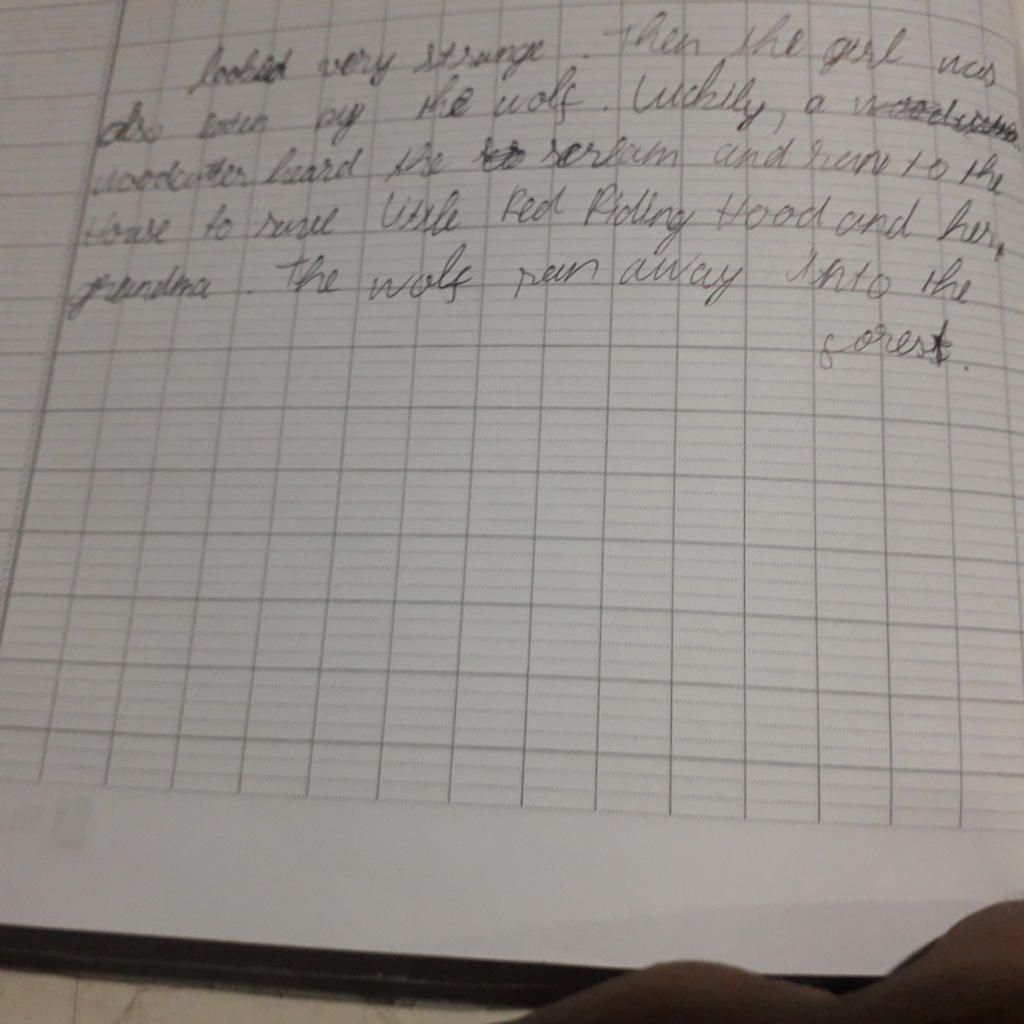 looked very strange. Then the girl was
also eaten by the wolf. Luckily, a
woodcutter heard the scream and run to the
House to save Little Red Riding Hood and her
grandma. The wolf ran away into the
forest.